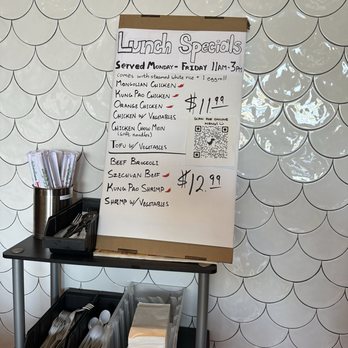 Lunch Specials
Served Monday - Friday 11am - 3pm
comes with steamed white rice + 1 eggroll
Mongolian Chicken
Kung Pao Chicken
Orange Chicken
Chicken w/ Vegetables
Chicken Chow Mein
(soft noodles)
Tofu w/ Vegetables
$11.99
Scan for online
menu
Beef Broccoli
Szechuan Beef
Kung Pao Shrimp
Shrimp w/ Vegetables
$12.99